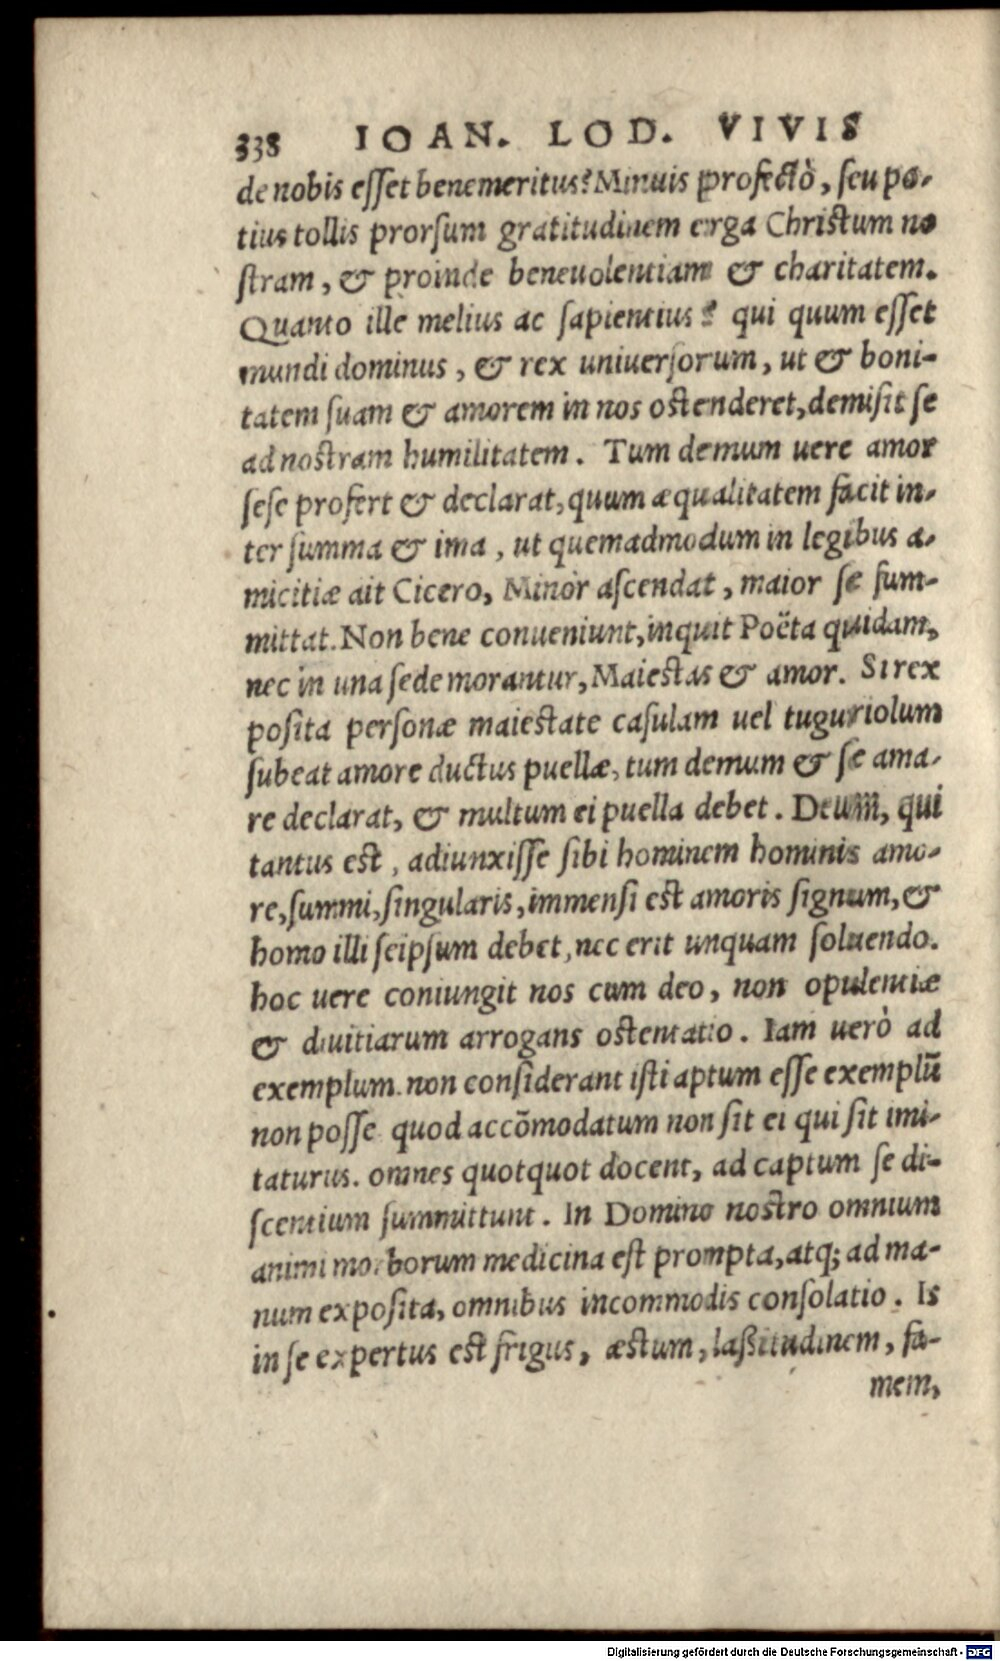 338 IOAN. LOD. VIVIS
de nobis esset benemeritus? Minuis profectò, seu po-
tius tollis prorsum gratitudinem erga Christum no
stram, & proinde beneuolentiam & charitatem.
Quanto ille melius ac sapientius? qui quum esset
mundi dominus, & rex uniuersorum, ut & boni-
tatem suam & amorem in nos ostenderet, demisit se
ad nostram humilitatem. Tum demum uere amor
sese profert & declarat, quum æqualitatem facit in-
ter summa & ima, ut quemadmodum in legibus a-
micitiæ ait Cicero, Minor ascendat, maior se sum-
mittat. Non bene conueniunt, inquit Poëta quidam,
nec in una sede morantur, Maiestas & amor. Si rex
posita personæ maiestate casulam uel tuguriolum
subeat amore ductus puellæ, tum demum & se ama-
re declarat, & multum ei puella debet. Deum, qui
tantus est, adiunxisse sibi hominem hominis amo-
re, summi, singularis, immensi est amoris signum, &
homo illi seipsum debet, nec erit unquam soluendo.
hoc uere coniungit nos cum deo, non opulentiæ
& diuitiarum arrogans ostentatio. Iam uerò ad
exemplum. non considerant isti aptum esse exemplū
non posse quod accōmodatum non sit ei qui sit imi-
taturus. omnes quotquot docent, ad captum se di-
scentium summittunt. In Domino nostro omnium
animi morborum medicina est prompta, atq; ad ma-
num exposita, omnibus incommodis consolatio. Is
in se expertus est frigus, æstum, laßitudinem, fa-
mem,
Digitalisierung gefördert durch die Deutsche Forschungsgemeinschaft - DFG